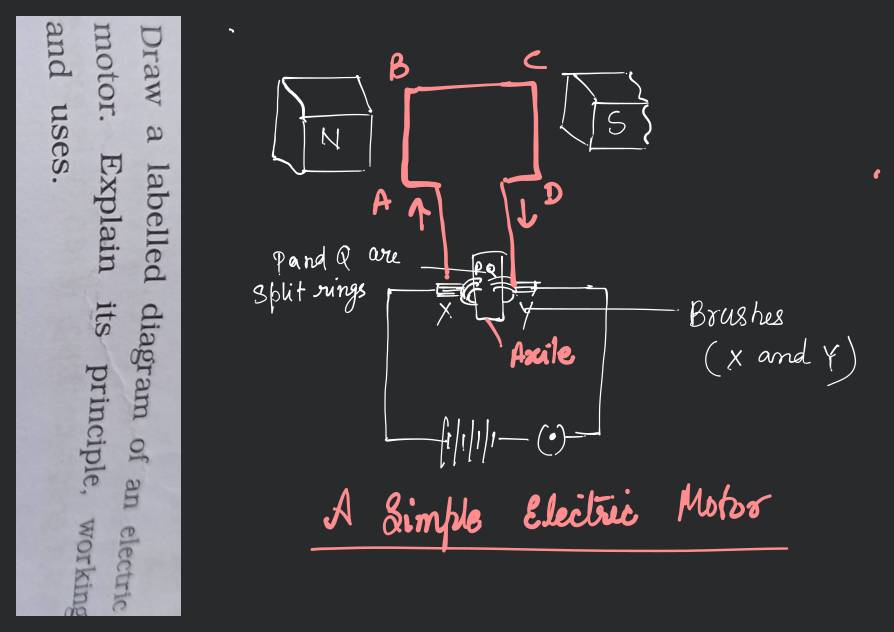 Draw a labelled diagram of an electric
motor. Explain its principle, working
and uses.
B
C
N
S
A
D
P and Q are
split rings
P Q
X
Y
Brushes
(X and Y)
Axile
A Simple Electric Motor